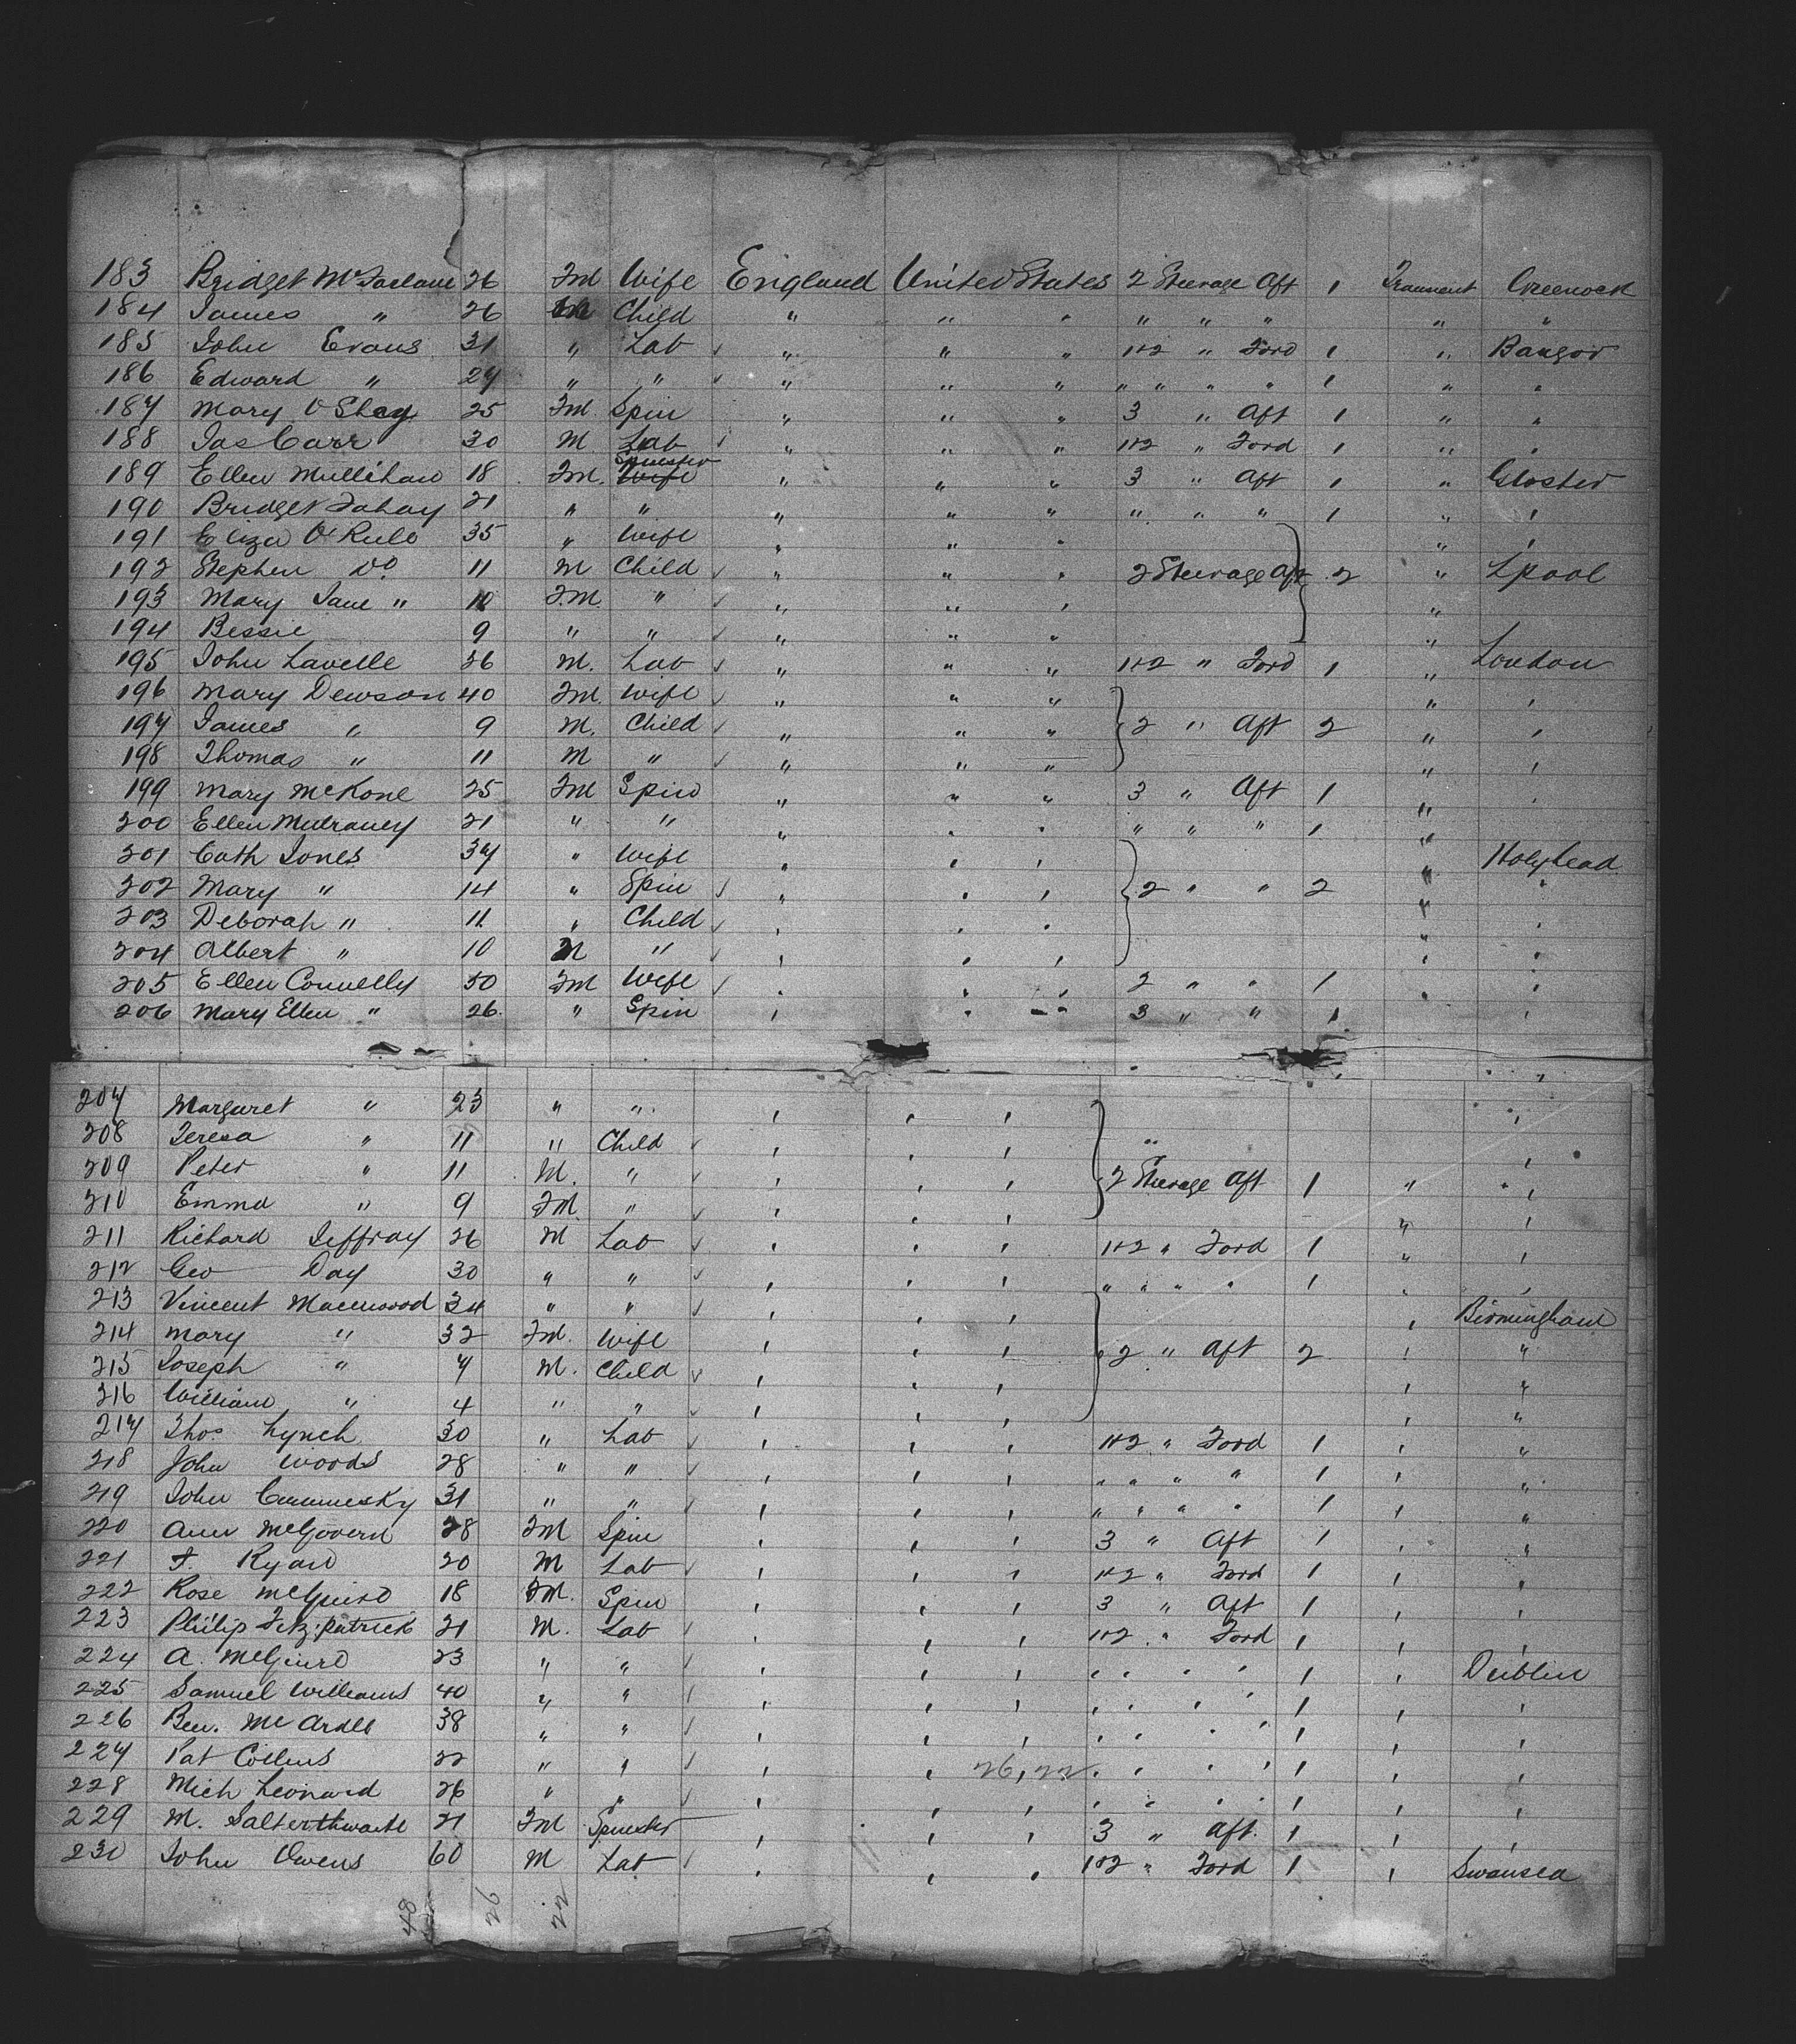 183 Bridget McFarlane 26 Fm Wife England United States 2 Steerage Aft 1 Transient Greenock
184 James " 26 M Child " " " " " " " "
185 John Evans 31 " Lab " " " 1+2 " Ford 1 " Bangor
186 Edward " 27 " " " " " " " " " 1 " "
187 Mary O Shay 25 Fm Spin " " " 3 " Aft 1 " "
188 Jas Carr 30 M Lab " " " 1+2 " Ford 1 " "
189 Ellen Mullihan 18 Fm. Spinster " " " 3 " Aft 1 " Gloster
190 Bridget Fahay 21 " " " " " " " " 1 " "
191 Eliza 35 " Wife " " " " "
192 Stephen Do 11 M Child " " " 2 Steerage Aft 2 " Lpool
193 Mary Jane " 10 F.M. " " " " "
194 Bessie 9 " " " " " "
195 John Lavelle 36 M. Lab " " " 1+2 " Ford 1 " London
196 Mary Dewson 40 Fm. Wife " " " " "
197 James " 9 M. Child " " " 2 " Aft 2 " "
198 Thomas " 11 M " " " " " "
199 Mary McKone 25 Fm Spin " " " 3 " Aft 1 " "
200 Ellen Mulraney 21 " " " " " " " " 1 "
201 Cath Jones 37 " Wife " " " " Holyhead
202 Mary " 14 " Spin " " " 2 " " 2 " "
203 Deborah " 11 " Child " " " " "
204 Albert " 10 M " " " " " "
205 Ellen Connelly 50 Fm Wife " " " 2 " " 1 " "
206 Mary Ellen " 26 " Spin " " " 3 " " 1 "
207 Margaret " 23 " " " " " "
208 Teresa " 11 " Child " " " " "
209 Peter " 11 M. " " " " 2 Steerage Aft 1 " "
210 Emma " 9 Fm " " " " " "
211 Richard Jeffray 26 M Lab " " " 1+2 " Ford 1 " "
212 Geo Day 30 " " " " " " " " " 1 " "
213 Vincent 34 " " " " " " Birmingham
214 Mary " 32 Fm. Wife " " " 2 " Aft 2 " "
215 Joseph " 7 M. Child " " " " "
216 William " 4 " " " " " " "
217 Thos. Lynch 30 " Lab " " " 1+2 " Ford 1 " "
218 John Woods 28 " " " " " " " " " 1 " "
219 John 31 " " " " " " " " " 1 " "
220 Ann McGovern 28 Fm Spin " " " 3 " Aft 1 " "
221 Ryan 20 M Lab " " " 1+2 " Ford 1 " "
222 Rose McGuire 18 Fm. Spin " " " 3 " Aft 1 " "
223 Philip Fitzpatrick 21 M. Lab " " " 1+2 " Ford 1 " "
224 A. McGuire 23 " " " " " " " " " 1 " Dublin
225 Samuel Williams 40 " " " " " " " " " 1 " "
226 Ben. McArdle 38 " " " " " " " " " 1 " "
227 Pat Collins 22 " " " " 26,22 " " " " 1 " "
228 Mich Leonard 26 " " " " " " " " " 1 " "
229 M. Salterthwaite 21 Fm Spinster " " " 3 " Aft. 1 " "
230 John Owens 60 M Lab " " " 1+2 " Ford 1 " Swansea
48 26 22